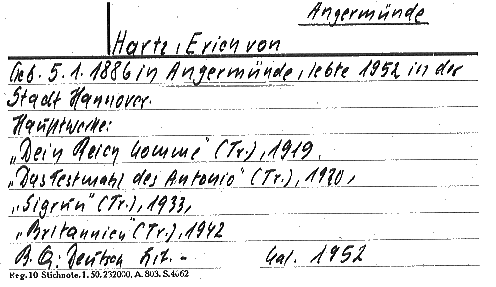 Angermünde
Hartz, Erich von
Geb. 5.1.1886 in Angermünde, lebte 1952 in der
Stadt Hannover.
Hauptwerke:
„Dein Reich komme" (Tr.), 1919,
„Das Festmahl des Antonio" (Tr.), 1920,
„Sigrun" (Tr.), 1933,
„Britannien" (Tr.), 1942
B.Q: Deutsch Lit. - Kal. 1952
Reg. 10 Stichnote. 1. 50. 232000, A. 803. S. 4662